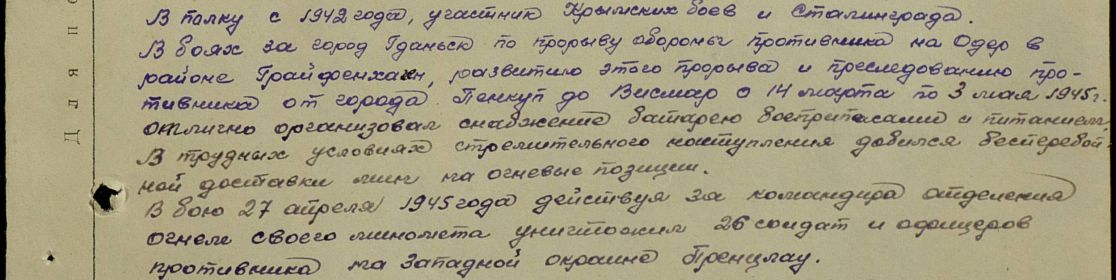 В полку с 1942 года, участник Крымских боев и Сталинграда.
В боях за город Гданьск по прорыву обороны противника на Одер в
районе Грайфенхаген, развитию этого прорыва и преследованию про-
тивника от города Пенкун до Висмар с 14 марта по 3 мая 1945 г.
отлично организовал снабжение батарею боеприпасами и питанием.
В трудных условиях стремительного наступления добился бесперебой-
ной доставки мин на огневые позиции.
В бою 27 апреля 1945 года действуя за командира отделения
огнем своего миномета уничтожил 26 солдат и офицеров
противника на западной окраине Пренцлау.
Для п